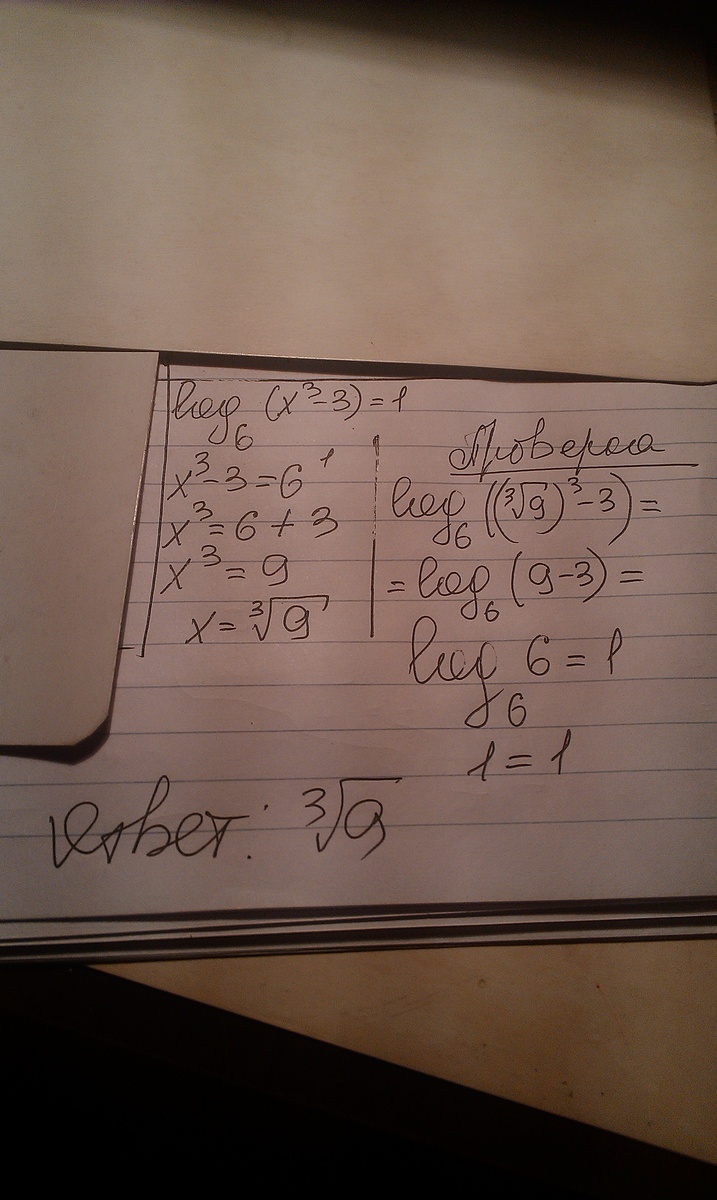 log₆ (x³-3) = 1
x³-3 = 6¹
x³ = 6 + 3
x³ = 9
x = ³√9
Проверка
log₆ ((³√9)³-3) =
= log₆ (9-3) =
log₆ 6 = 1
1 = 1
Ответ: ³√9